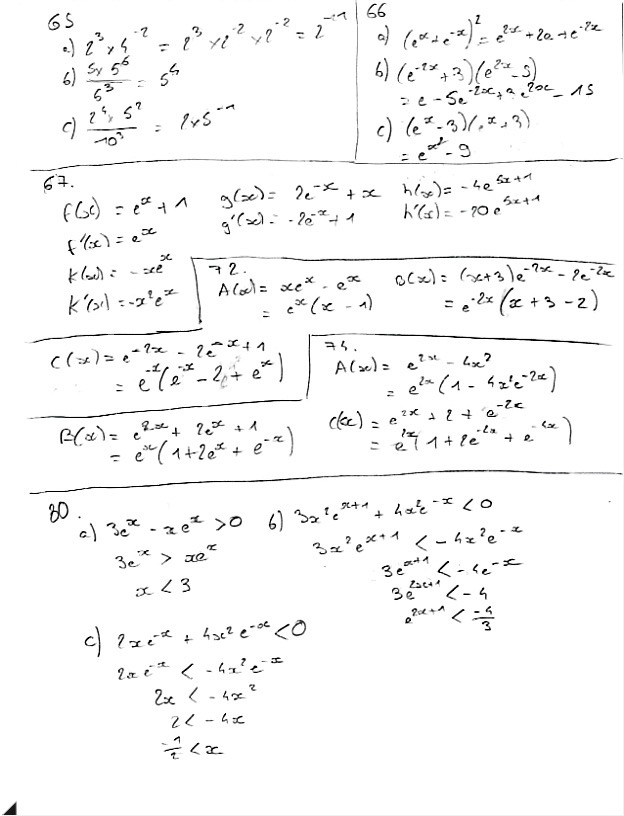 65
a) 2³ × 4⁻² = 2³ × 2⁻² × 2⁻² = 2⁻¹
b) 5 × 5⁶ / 5³ = 5⁴
c) 2⁴ × 5² / 10³ = 2 × 5⁻¹
66
a) (eˣ + e⁻ˣ)² = e²ˣ + 2 + e⁻²ˣ
b) (e⁻²ˣ + 3)(e²ˣ - 5)
= e - 5e⁻²ˣ + 3e²ˣ - 15
c) (eˣ - 3)(eˣ + 3)
= eˣ² - 9
67.
f(x) = eˣ + 1 g(x) = 2e⁻ˣ + x h(x) = -4e⁵ˣ⁺¹
f'(x) = eˣ g'(x) = -2e⁻ˣ + 1 h'(x) = -20e⁵ˣ⁺¹
k(x) = -xeˣ
k'(x) = -x²eˣ
72.
A(x) = xeˣ - eˣ B(x) = (x+3)e⁻²ˣ - 2e⁻²ˣ
= eˣ(x - 1) = e⁻²ˣ(x + 3 - 2)
C(x) = e⁻²ˣ - 2e⁻ˣ + 1
= e⁻ˣ(e⁻ˣ - 2 + eˣ)
74.
A(x) = e²ˣ - 4x²
= e²ˣ(1 - 4x²e⁻²ˣ)
B(x) = e²ˣ + 2eˣ + 1
= eˣ(1 + 2eˣ + e⁻ˣ)
C(x) = e²ˣ + 2 + e⁻²ˣ
= e²ˣ(1 + 2e⁻²ˣ + e⁻⁴ˣ)
80.
a) 3eˣ - xeˣ > 0
3eˣ > xeˣ
x < 3
b) 3x²eˣ⁺¹ + 4x²e⁻ˣ < 0
3x²eˣ⁺¹ < -4x²e⁻ˣ
3eˣ⁺¹ < -4e⁻ˣ
3e²ˣ⁺¹ < -4
e²ˣ⁺¹ < -4/3
c) 2xe⁻ˣ + 4x²e⁻ˣ < 0
2xe⁻ˣ < -4x²e⁻ˣ
2x < -4x²
2 < -4x
-1/2 < x